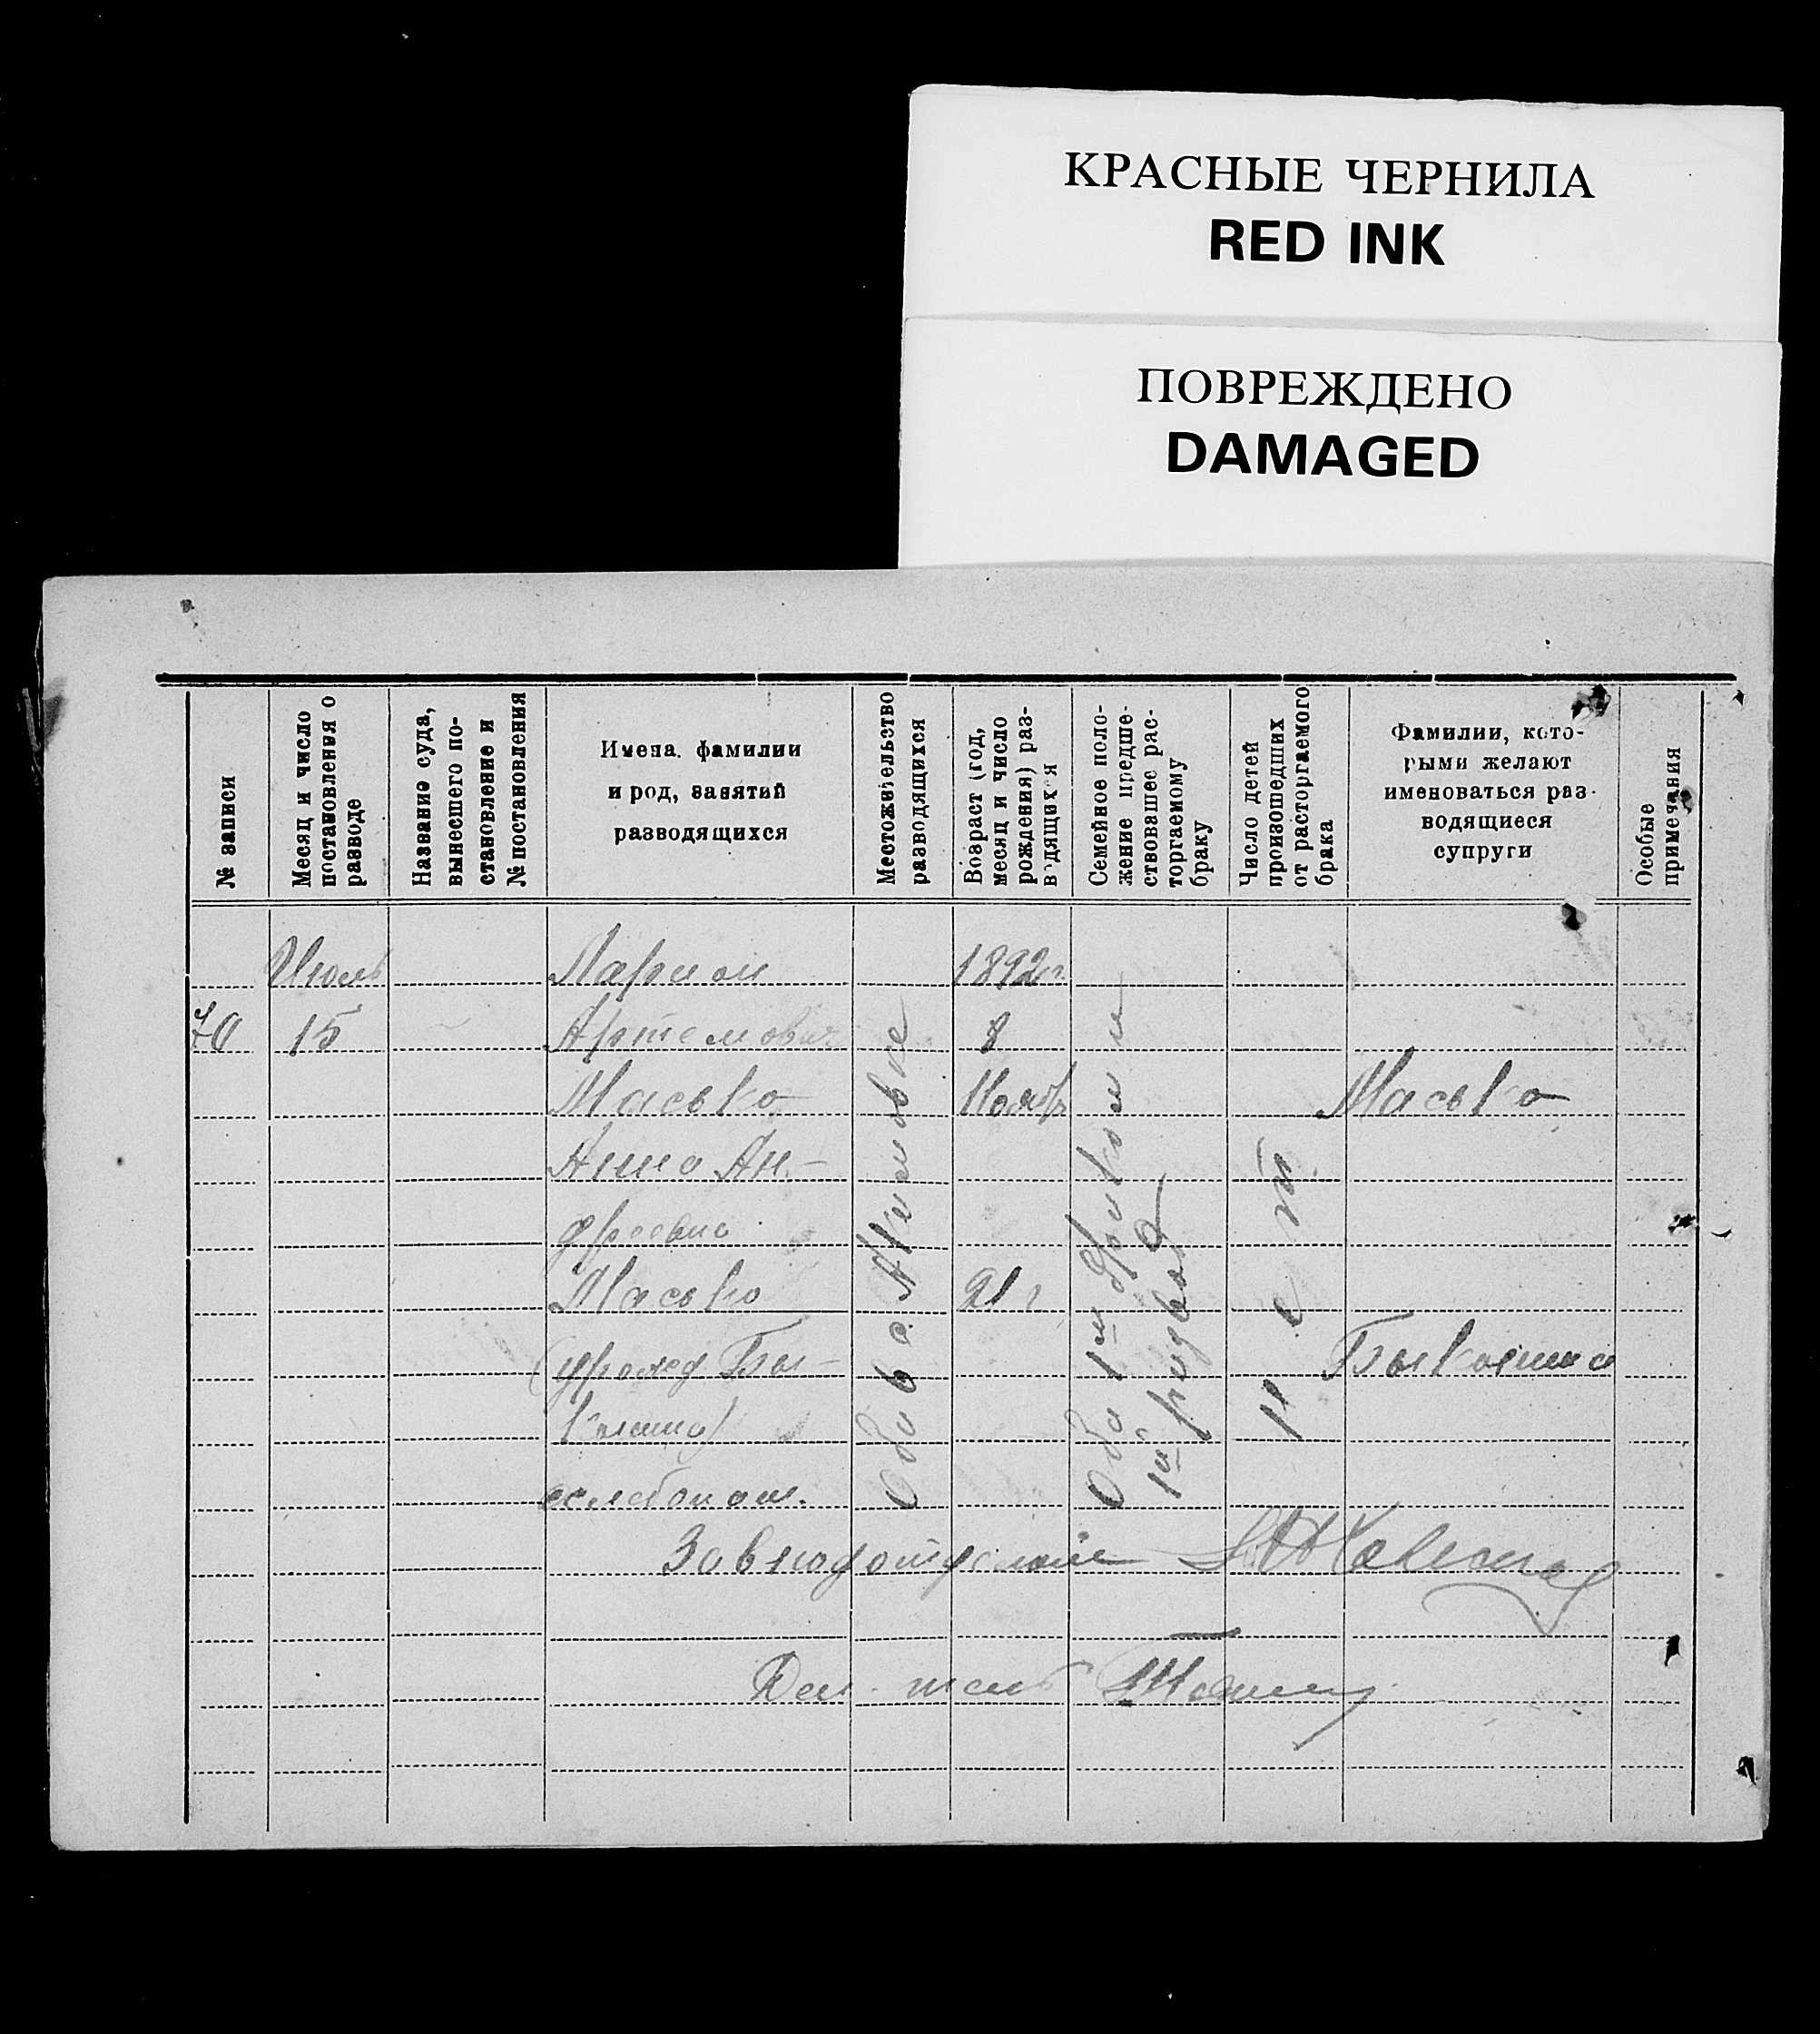 КРАСНЫЕ ЧЕРНИЛА
RED INK
ПОВРЕЖДЕНО
DAMAGED
№ записи
Месяц и число
постановления о
разводе
Название суда,
вынесшего по-
становление и
№ постановления
Имена. фамилии
и род, занятий
разводящихся
Местожительство
разводящихся
Возраст (год,
месяц и число
рождения) раз-
водящихся
Семейное поло-
жение предше-
ствовавшее рас-
торгаемому
браку
Число детей
происшедших
от расторгаемого
брака
Фамилии, кото-
рыми желают
именоваться раз-
водящиеся
супруги
Особые
примечания
Июль
70
15
Ларион
Артемович
Масько
Анна Ан-
дреевна
Масько
Бы-
Оба в с
1892 г.
8
Ноябр
21 г
Оба 1м браком и
1й развод
Нет
Масько
Завподотделом